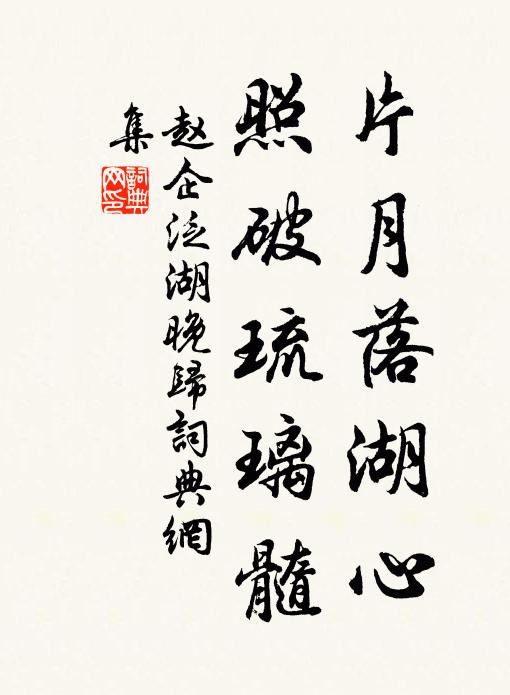 片月落湖心
照破琉璃髓
赵企泛湖晚歸詞典網
集
詞典
网印